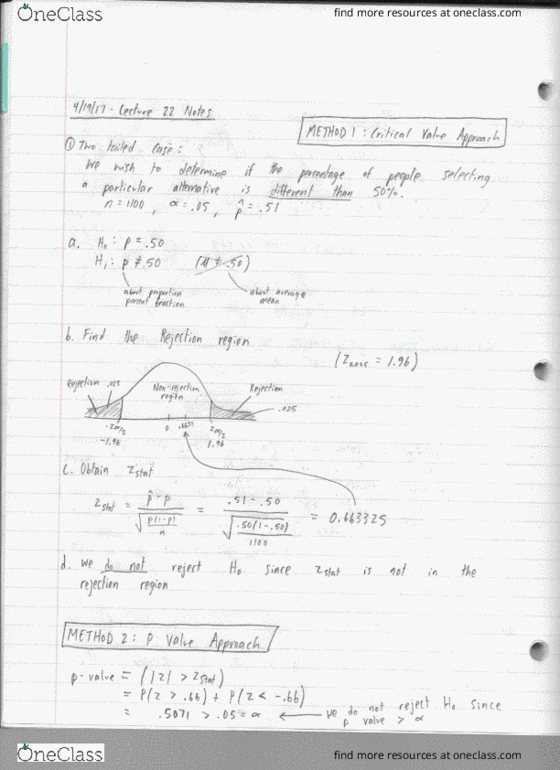 OneClass
find more resources at oneclass.com
4/19/17 - Lecture 22 Notes
METHOD 1 : Critical Value Approach
① Two tailed case:
We wish to determine if the percentage of people selecting
a particular alternative is different than 50%.
n = 1100 , α = .05 , p̂ = .51
a. H₀ : p = .50
H₁ : p ≠ .50 (M ≠ .50)
about proportion about average
percent fraction mean
b. Find the Rejection region
(Z.025 = 1.96)
Rejection .025 Non-rejection Rejection
region
.025
-zα/2 0 .6633 zα/2
-1.96 1.96
c. Obtain zstat
zstat = p̂ - p / √(p(1-p)/n) = .51 - .50 / √(.50(1-.50)/1100) = 0.663325
d. we do not reject H₀ since zstat is not in the
rejection region
METHOD 2 : P Value Approach
p-value = (|z| > zstat)
= P(z > .66) + P(z < -.66)
= .5071 > .05 = α ← we do not reject H₀ since
p value > α
OneClass
find more resources at oneclass.com